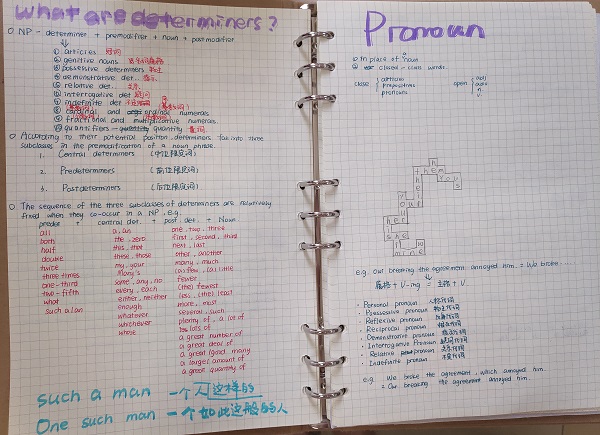 what are determiners?
NP - determiner + premodifier + noun + postmodifier
① articles 冠词
② genitive nouns
③ possessive determiners
④ demonstrative det.
⑤ relative det.
⑥ interrogative det
⑦ indefinite det
⑧ cardinal and ordinal numerals
⑨ fractional and multiplicative numerals
⑩ quantifiers - quantity 量词
According to their potential position, determiners fall into three
subclasses in the premodification of a noun phrase.
1. Central determiners (中位限定词)
2. Predeterminers (前位限定词)
3. Postdeterminers (后位限定词)
The sequence of the three subclasses of determiners are relatively
fixed when they co-occur in a NP, e.g.
predet + central det. + post. det. + Noun.
all a, an one, two, three
both the, zero first, second, third
half this, that next, last
double these, those other, another
twice my, your many, much
three times Mary's (a) few, (a) little
one-third some, any, no fewer
two-fifth every, each (the) fewest
what either, neither less, (the) least
such a/an enough more, most
whatever several, such
whichever plenty of, a lot of
whose lots of
a great number of
a great deal of
a great/good many
a large amount of
a great quantity of
such a man 一个人这样的
One such man 一个如此这般的人
Pronoun
in place of a noun
closed-class words.
close articles prepositions pronouns open adj. adv. n. v.
them
you
us
she
mine
e.g. Our breaking the agreement annoyed him. = We broke ...
属格 + V-ing = 主格 + V
Personal pronoun 人称代词
Possessive pronoun 物主代词
Reflexive pronoun 反身代词
Reciprocal pronoun 相互代词
Demonstrative pronoun 指示代词
Interrogative Pronoun 疑问代词
Relative pronoun 关系代词
Indefinite pronoun 不定代词
e.g. We broke the agreement, which annoyed him.
= Our breaking the agreement annoyed him.